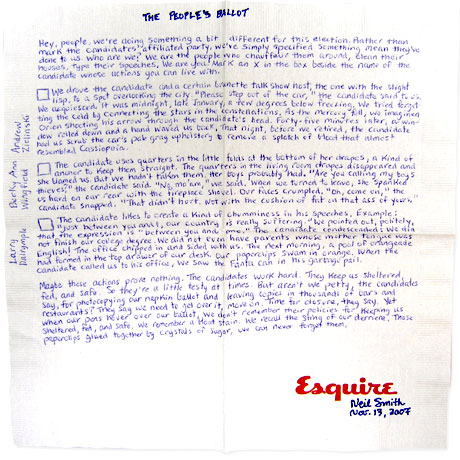 THE PEOPLE'S BALLOT
Hey, people, we're doing something a bit different for this election. Rather than
mark the candidates' affiliated party, we've simply specified something mean they've
done to us. Who are we? We are the people who chauffeur them around, clean their
houses, type their speeches. We are you! Mark an X in the box beside the name of the
candidate whose actions you can live with.
Andrew
Zielawski
We drove the candidate and a certain brunette talk show host, the one with the slight
lisp, to a spot overlooking the city. "Please step out of the car," the candidate said to us.
We acquiesced. It was midnight, late January, a few degrees below freezing. We tried forget
ting the cold by connecting the stars in the constellations. As the mercury fell, we imagined
Orion shooting his arrow through the candidate's head. Forty-five minutes later, a win-
dow rolled down and a hand waved us over. That night, before we retired, the candidate
had us scrub the car's pale gray upholstery to remove a splotch of blood that almost
resembled Cassiopeia.
Ann
Wingfield
The candidate uses quarters in the little folds at the bottom of her drapes, a kind of
anchor to keep them straight. The quarters in the living room drapes disappeared and
she blamed us. But we hadn't taken them, her boys probably had. "Are you calling my boys
thieves," the candidate said. "No, ma'am," we said. When we turned to leave, she spanked
us hard on our rear with the fireplace shovel. Our faces crumpled. "Oh, come on," the
candidate snapped. "That didn't hurt. Not with the cushion of fat on that ass of yours."
Larry
Dalrymple
The candidate likes to create a kind of chumminess in his speeches. Example:
"Just between you and I, our country is really suffering." We pointed out, politely,
that the expression is "between you and me." The candidate condescended: We did
not finish our college degree. We did not even have parents whose mother tongue was
English! The office chipped in and sided with us. The next morning, a pool of orangeade
had formed in the top drawer of our desk. Our paperclips swam in orange. When the
candidate called us to his office, we saw the Fanta can in his garbage pail.
Maybe these actions prove nothing. The candidates work hard. They keep us sheltered,
fed, and safe. So they're a little testy at times. But aren't we petty, the candidates
say, for photocopying our napkin ballot and leaving copies in thousands of bars and
restaurants? They say we need to get over it, move on. Time for closure, they say. Yet
when our pens hover over our ballot, we don't remember their policies for keeping us
sheltered, fed, and safe. We remember a blood stain. We recall the sting of our derriere. Those
paperclips glued together by crystals of sugar, we can never forget them.
Esquire
Neil Smith
Nov. 13, 2007